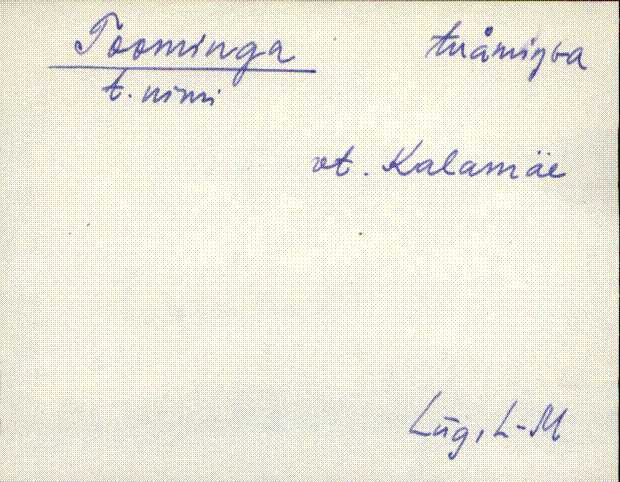 Toominga tuåmiŋga
t. nimi
vt. Kalamäe
Lüg, L-M